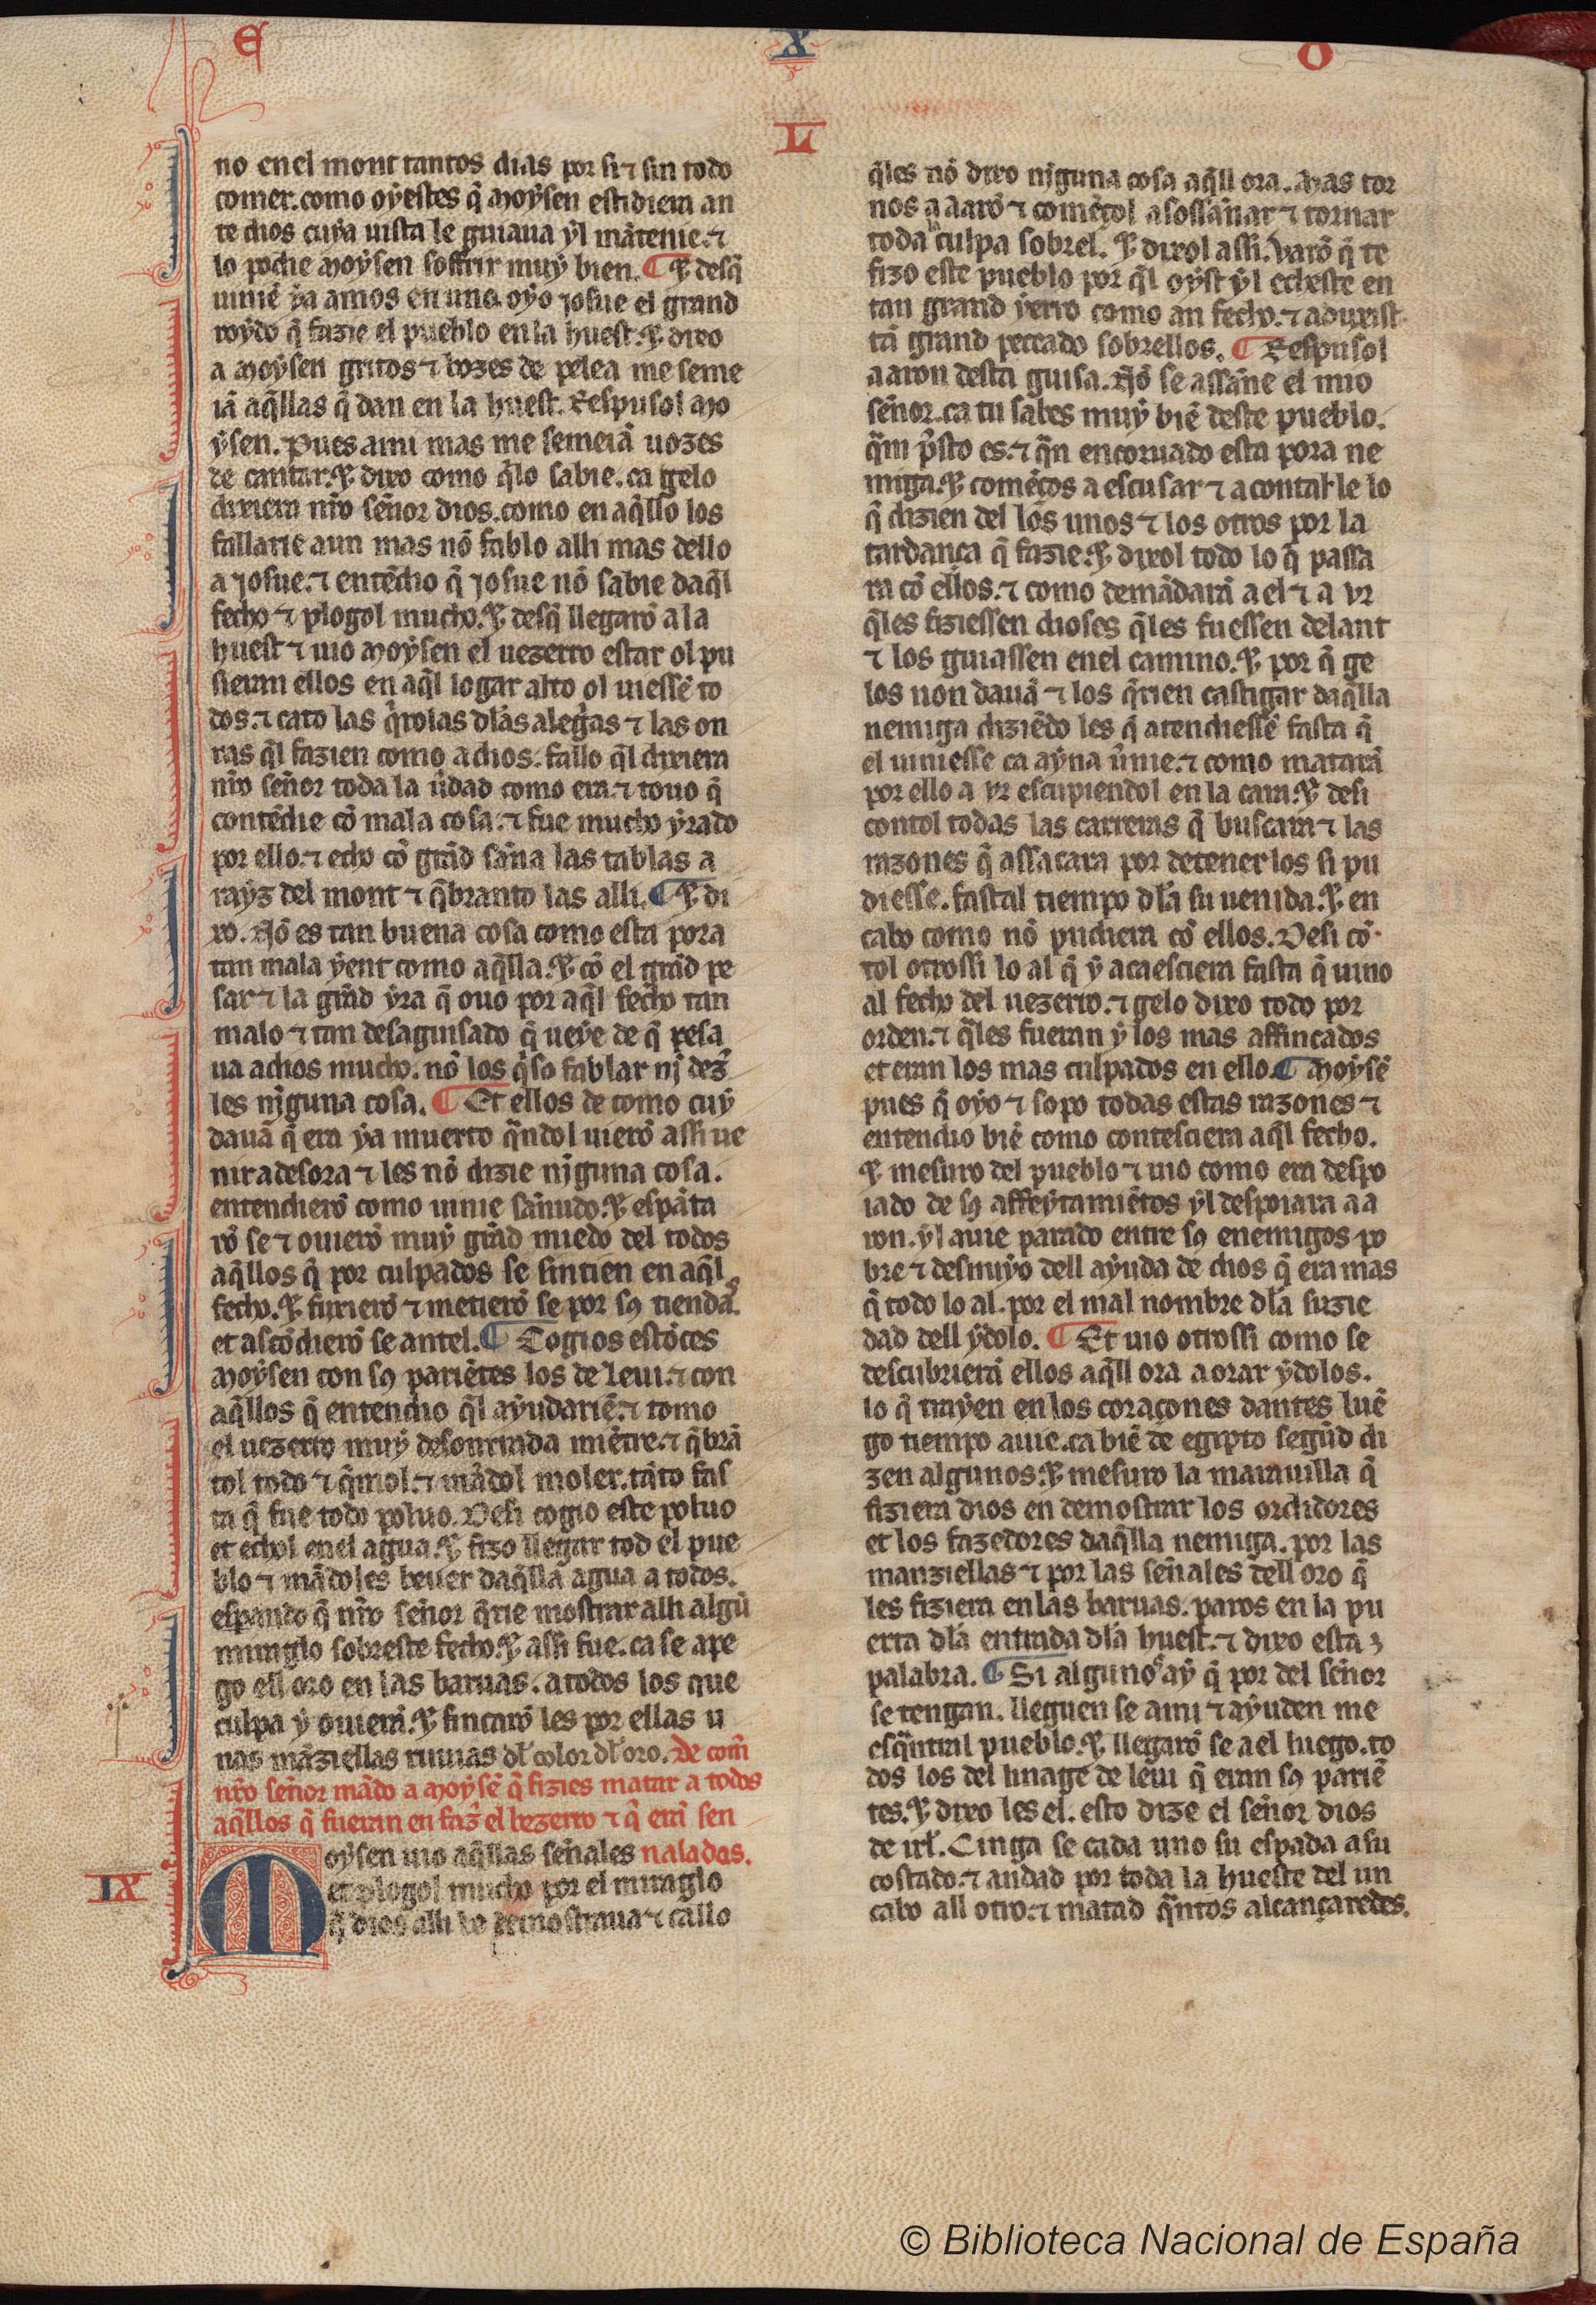 E X O
L
no enel mont tantos dias por si ⁊ sin todo
comer. como oyestes q̃ Moysen estidiera an
te dios cuya uista le guiaua yl mãtenie. ⁊
lo podie Moysen soffrir muy bien. ¶ ⁊ desq̃
uiniẽ ya amos en uno. oyo Josue el grand
roydo q̃ fazie el pueblo en la huest. ⁊ dixo
a Moysen gritos ⁊ bozes de pelea me seme
iã aq̃llas q̃ dan en la huest. Respusol Mo
ysen. Pues ami mas me semeiã uozes
de cantar. ⁊ dixo como q̃lo sabie. ca gelo
dixiera nr̃o señor dios. como en aq̃llo los
fallarie aun mas nõ fablo alli mas dello
a Josue. ⁊ entẽdio q̃ Josue nõ sabie daq̃l
fecho ⁊ plogol mucho. ⁊ desq̃ llegarõ a la
huest ⁊ uio Moysen el uezerro estar ol pu
sieran ellos en aq̃l logar alto ol uiessẽ to
dos. ⁊ cato las q̃rolas dlas alegãs ⁊ las on
ras q̃l fazien como a dios. fallo q̃l dixiera
nr̃o señor toda la ũdad como era. ⁊ touo q̃
contẽdie cõ mala cosa. ⁊ fue mucho yrado
por ello. ⁊ echo cõ grãd saña las tablas a
rayz del mont ⁊ q̃branto las alli. ¶ ⁊ di
xo. Nõ es tan buena cosa como esta pora
tan mala yent como aq̃lla. ⁊ cõ el grãd pe
sar ⁊ la grãd yra q̃ ouo por aq̃l fecho tan
malo ⁊ tan desaguisado q̃ ueye de q̃ pesa
ua a dios mucho. nõ los q̃so fablar nj dez̃
les njguna cosa. ¶ Et ellos de como cuy
dauã q̃ era ya muerto q̃ndol uierõ assi ue
nir a desora ⁊ les nõ dizie njguna cosa.
entendierõ como uinie sañudo. ⁊ espãta
rõ se ⁊ ouierõ muy grãd miedo del todos
aq̃llos q̃ por culpados se sintien en aq̃l
fecho. ⁊ fuxierõ ⁊ metierõ se por sꝯ tiendas.
et ascõdierõ se antel. ¶ Cogios estõces
Moysen con sꝯ pariẽtes los de leui. ⁊ con
aq̃llos q̃ entendio q̃l ayudariẽ. ⁊ tomo
el uezerro muy desonrrada miẽtre. ⁊ q̃brã
tol todo ⁊ q̃mol. ⁊ mãdol moler. tãto fas
ta q̃ fue todo poluo. Desi cogio este poluo
et echol enel agua. ⁊ fizo llegar tod el pue
blo ⁊ mãdoles beuer daq̃lla agua a todos.
espando q̃ nr̃o señor q̃rie mostrar alli algũ
miraglo sobreste fecho. ⁊ assi fue. ca se ape
go ell oro en las baruas. a todos los que
culpa y ouierã. ⁊ fincarõ les por ellas u
nas mãziellas ruuias dl̃ color dl̃ oro. De com̃
nr̃o señor mãdo a Moysẽ q̃ fizies matar a todos
aq̃llos q̃ fueran en faz̃ el bezerro ⁊ q̃ erã sen
IX
Moysen uio aq̃llas señales nalados.
et plogol mucho por el miraglo
q̃ dios alli lo demostraua ⁊ callo
q̃les nõ dixo njguna cosa aq̃ll ora. Mas tor
nos a aarõ ⁊ comẽçol a sossañar ⁊ tornar
toda la culpa sobrel. ⁊ dixol assi. Varõ q̃ te
fizo este pueblo por q̃l oyst yl echeste en
tan grand yerro como an fecho. ⁊ aduxist
tã grand peccado sobrellos. ¶ Respusol
aaron desta guisa. Nõ se assañe el mio
señor. ca tu sabes muy biẽ deste pueblo.
q̃m p̃sto es. ⁊ q̃n encoruado esta pora ne
miga. ⁊ comẽços a escusar ⁊ a contar le lo
q̃ dizien del los unos ⁊ los otros por la
tardança q̃ fazie. ⁊ dixol todo lo q̃ passa
ra cõ ellos. ⁊ como demãdarã a el ⁊ a ur
q̃les fiziessen dioses q̃les fuessen delant
⁊ los guiassen enel camino. ⁊ por q̃ ge
los non dauã ⁊ los q̃rien castigar daq̃lla
nemiga diziẽdo les q̃ atendiessẽ fasta q̃
el uiniesse ca ayna ũnie. ⁊ como matarã
por ello a ur escupiendol en la cara. ⁊ desi
contol todas las carreras q̃ buscara ⁊ las
razones q̃ assacara por detener los si pu
diesse. fastal tiempo dl̃a su uenida. ⁊ en
cabo como nõ pudiera cõ ellos. Desi cõ
tol otrossi lo al q̃ y acaesciera fasta q̃ uino
al fecho del uezerro. ⁊ gelo dixo todo por
orden. ⁊ q̃les fueran y los mas affincados
et eran los mas culpados en ello. ¶ Moysẽ
pues q̃ oyo ⁊ sopo todas estas razones ⁊
entendio biẽ como contesciera aq̃l fecho.
⁊ mesuro del pueblo ⁊ uio como era despo
iado de sꝯ affeytamiẽtos yl despoiara aa
ron. yl auie parado entre sꝯ enemigos po
bre ⁊ desnuyo dell ayuda de dios q̃ era mas
q̃ todo lo al. por el mal nombre dl̃a suzie
dad dell ydolo. ¶ Et uio otrossi como se
descubrierã ellos aq̃ll ora a orar ydolos.
lo q̃ trayen en los coraçones dantes luẽ
go tiempo auie. ca biẽ de egipto segũd di
zen algunos. ⁊ mesuro la marauilla q̃
fiziera dios en demostrar los ordidores
et los fazedores daq̃lla nemiga. por las
manziellas ⁊ por las señales dell oro q̃
les fiziera en las baruas. paros en la pu
erta dl̃a entrada dl̃a huest. ⁊ dixo esta
palabra. ¶ Si algunos ay q̃ por del señor
se tengan. lleguen se ami ⁊ ayuden me
esq̃ntral pueblo. ⁊ llegarõ se a el luego. to
dos los del linage de leui q̃ eran sꝯ pariẽ
tes. ⁊ dixo les el. esto dize el señor dios
de irl̃. Cinga se cada uno su espada a su
costado. ⁊ andad por toda la hueste del un
cabo all otro. ⁊ matad q̃ntos alcançaredes.
© Biblioteca Nacional de España